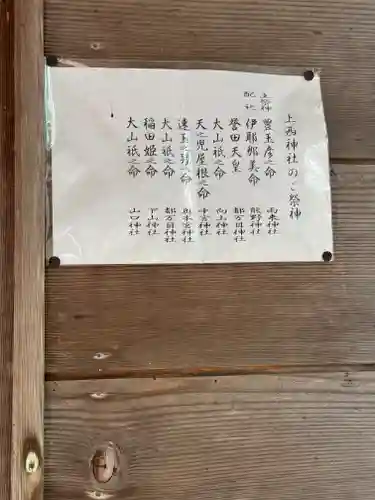 上西神社のご祭神
主祭神 豊玉彦之命 雨木神社
配社 伊耶那美命 熊野神社
誉田天皇 都万目神社
大山祇之命 向上神社
天之児屋根之命 中宮神社
速玉之男之命 奥本宮神社
大山祇之命 都万目神社
稲田姫之命 下山神社
大山祇之命 山口神社